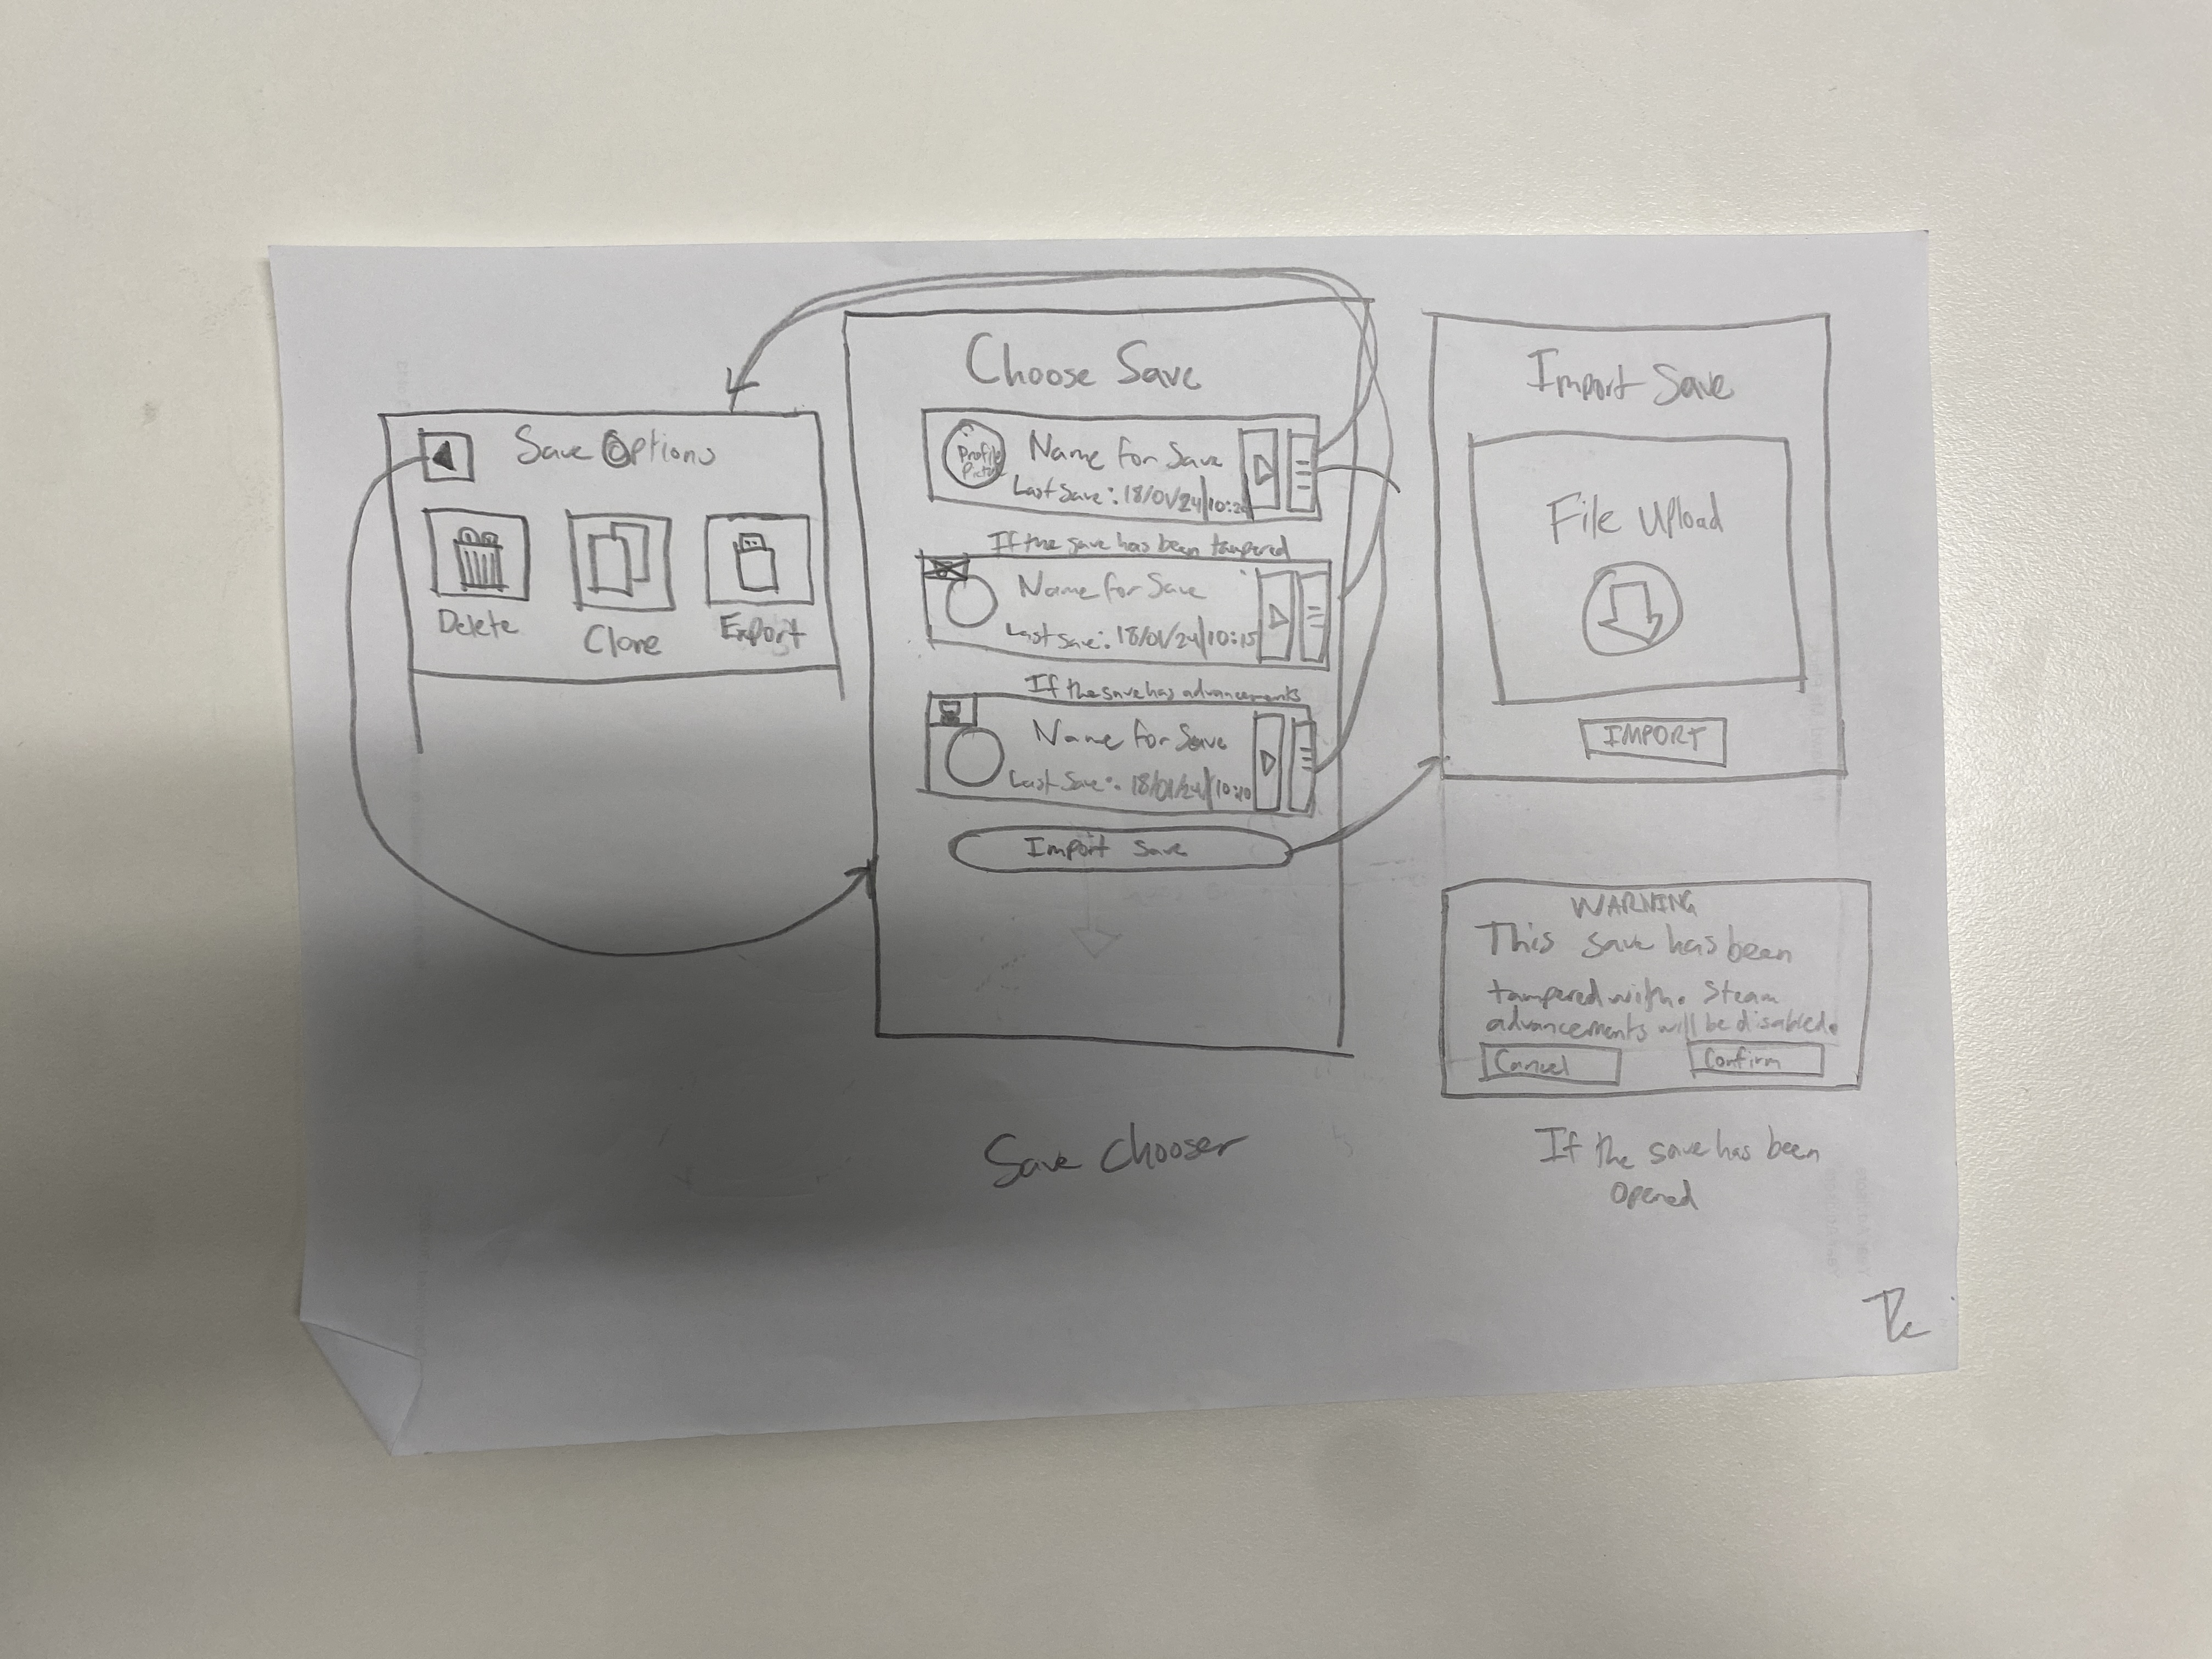 Save Options
Delete
Clone
Export
Choose Save
Profile
Picture
Name for Save
Last Save: 18/01/24|10:20
If the save has been tampered
Name for Save
Last save: 18/01/24|10:15
If the save has advancements
Name for Save
Last Save: 18/01/24|10:10
Import Save
Save Chooser
Import Save
File Upload
IMPORT
WARNING
This save has been
tampered with. Steam
advancements will be disabled.
Cancel
Confirm
If the save has been
opened